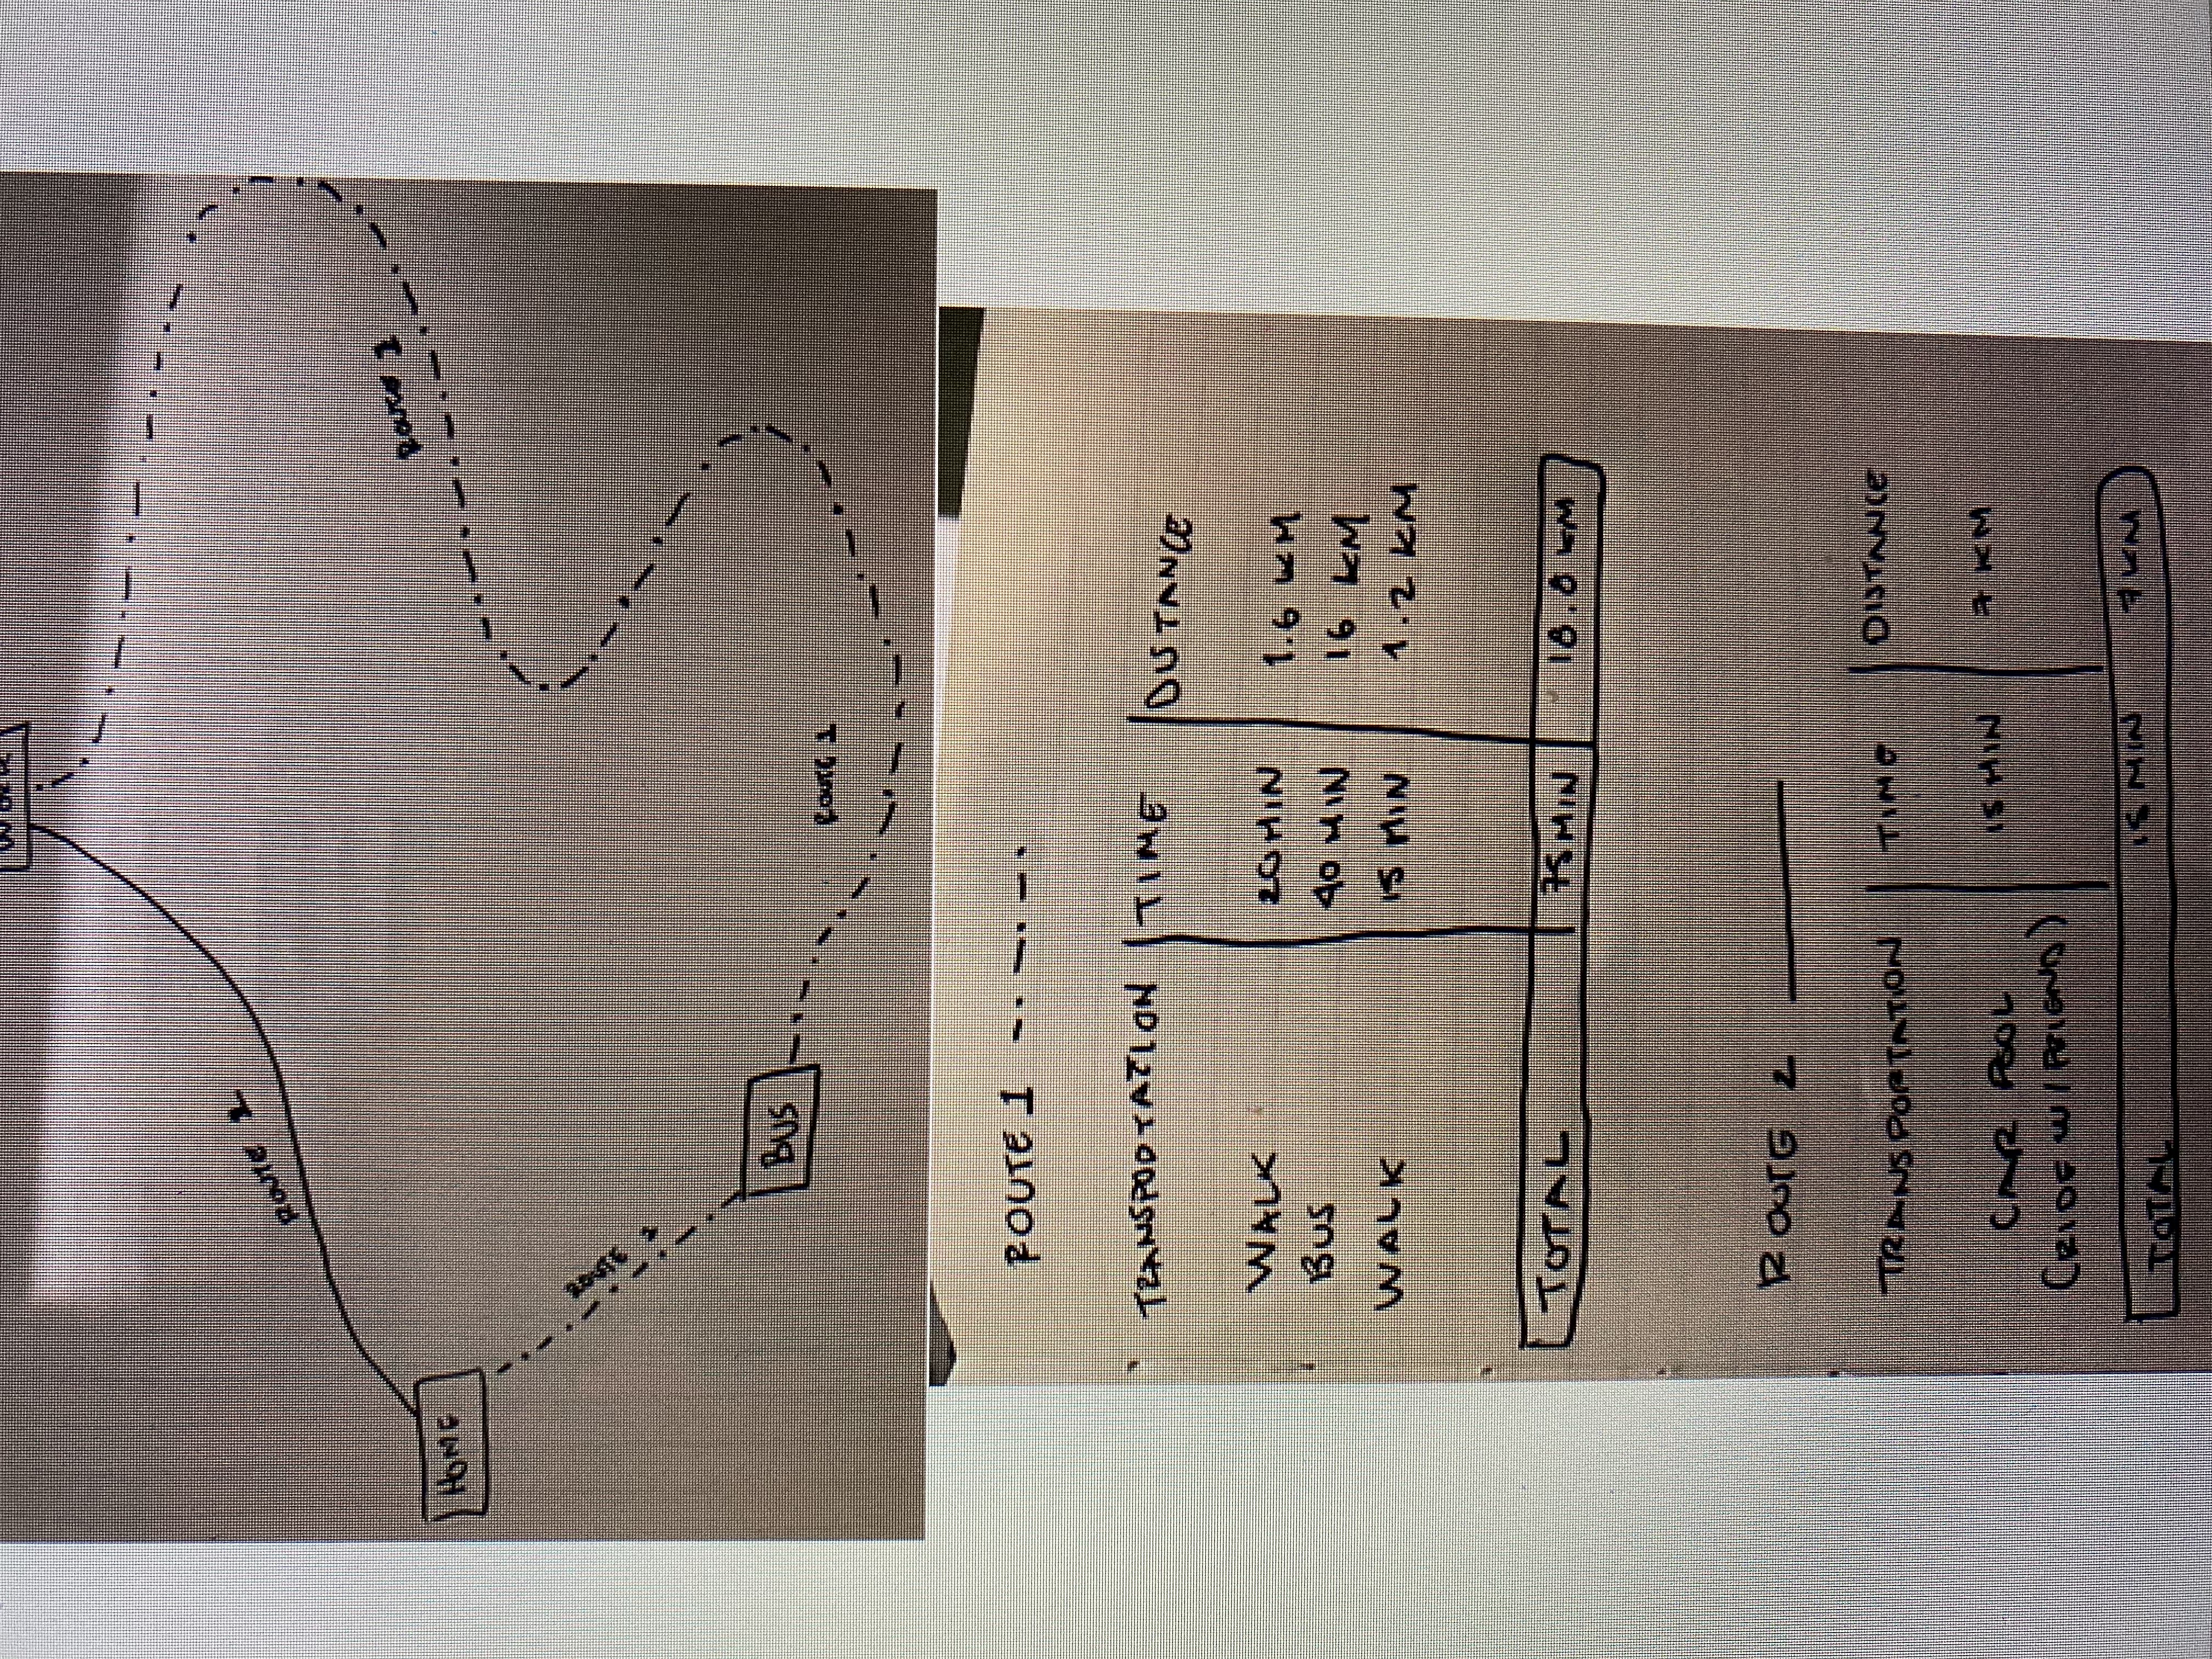 WORK
ROUTE 2
ROUTE 1
HOME
ROUTE 1
BUS
ROUTE 1
ROUTE 1
TRANSPORTATION TIME DISTANCE
WALK 20 MIN 1.6 KM
BUS 40 MIN 16 KM
WALK 15 MIN 1.2 KM
TOTAL 75 MIN 18.8 KM
ROUTE 2
TRANSPORTATION TIME DISTANCE
CAR POOL 15 MIN 7 KM
(RIDE W/ FRIEND)
TOTAL 15 MIN 7 KM